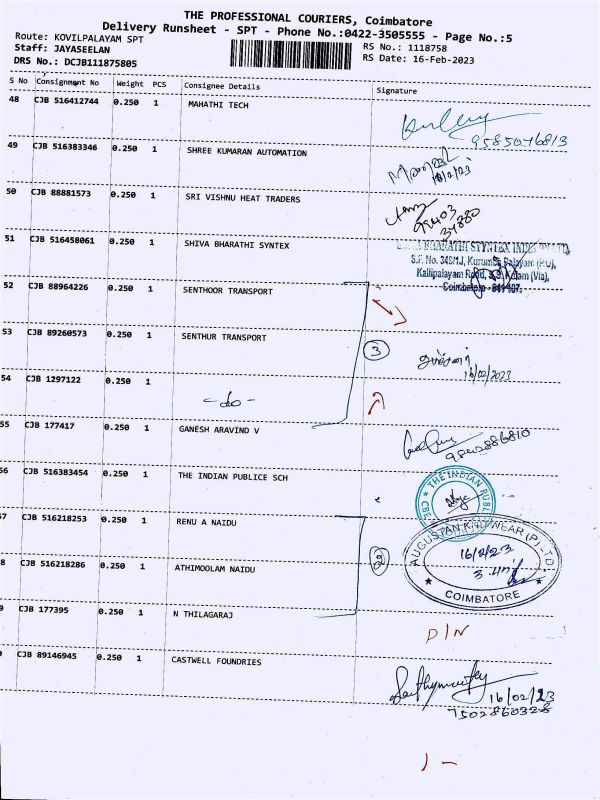 THE PROFESSIONAL COURIERS, Coimbatore
Delivery Runsheet - SPT - Phone No.:0422-3505555 - Page No.:5
Route: KOVILPALAYAM SPT
RS No.: 1118758
Staff: JAYASEELAN
RS Date: 16-Feb-2023
DRS No.: DCJB111875805
S No Consignment No Weight PCS Consignee Details Signature
48 CJB 516412744 0.250 1 MAHATHI TECH
9585046813
49 CJB 516383346 0.250 1 SHREE KUMARAN AUTOMATION
50 CJB 88881573 0.250 1 SRI VISHNU HEAT TRADERS
99403
31880
51 CJB 516458061 0.250 1 SHIVA BHARATHI SYNTEX
BHARATHI SYNTEX
Coimbatore
52 CJB 88964226 0.250 1 SENTHOOR TRANSPORT
53 CJB 89260573 0.250 1 SENTHUR TRANSPORT
3
16/02/2023
54 CJB 1297122 0.250 1 -do-
55 CJB 177417 0.250 1 GANESH ARAVIND V
56 CJB 516383454 0.250 1 THE INDIAN PUBLICE SCH
THE INDIAN PUBL
CBE
7 CJB 516218253 0.250 1 RENU A NAIDU
AUGUSTAN KNITWEAR (P) LTD
16/2/23
COIMBATORE
8 CJB 516218286 0.250 1 ATHIMOOLAM NAIDU
9 CJB 177395 0.250 1 N THILAGARAJ
D/N
CJB 89146945 0.250 1 CASTWELL FOUNDRIES
Sathymurthy
16/02/23
7502860328